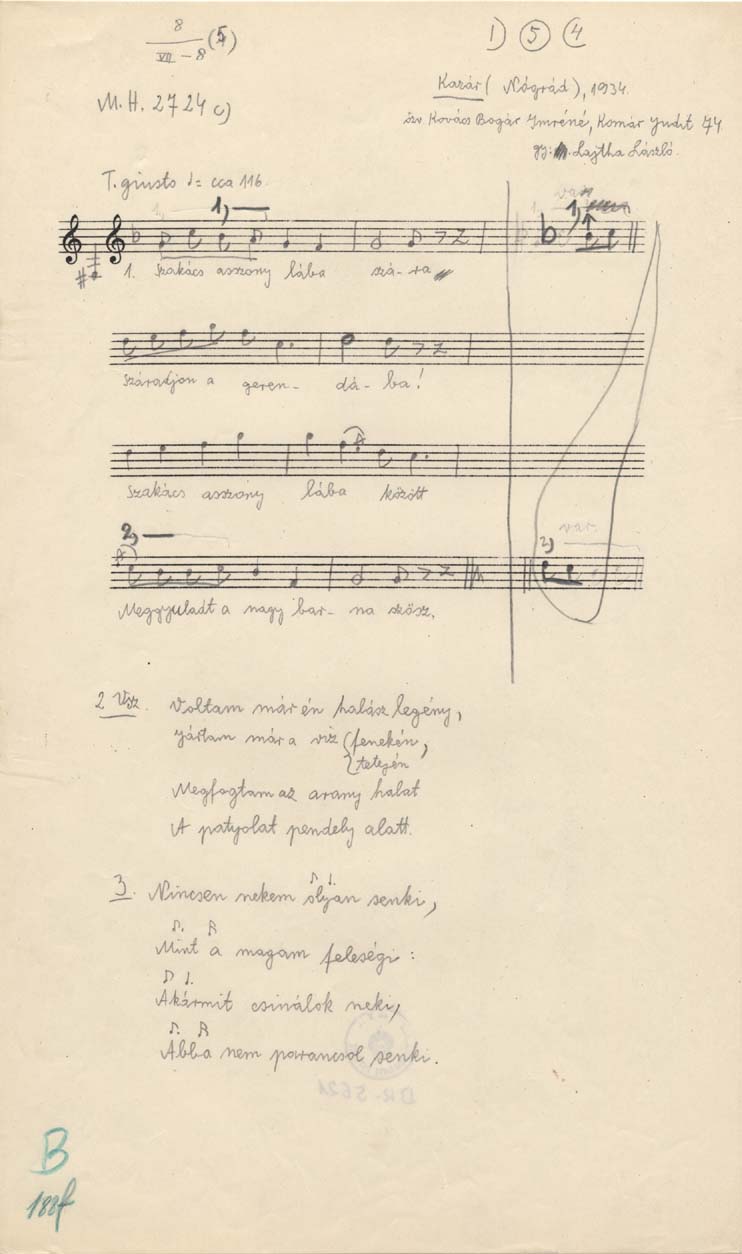 8
VII – 8 (5)
1) 5 4
Kazár (Nógrád), 1934.
M.H. 2724 c)
özv. Kovács Bogár Imréné, Komár Judit 74
gy: Lajtha László.
T. giusto ♩= cca 116.
1) var 1)
1. Szakács asszony lába szá-ra
Száradjon a geren- dá- ba!
Szakács asszony lába között
2) var. 2)
Meggyuladt a nagy bar- na szösz.
2 Vsz. Voltam már én halász legény,
Jártam már a viz (fenekén,
tetején
Megfogtam az arany halat
A patyolat pendely alatt.
3. Nincsen nekem olyan senki,
Mint a magam feleségi:
Akármit csinálok neki,
Abba nem parancsol senki.
B
188f